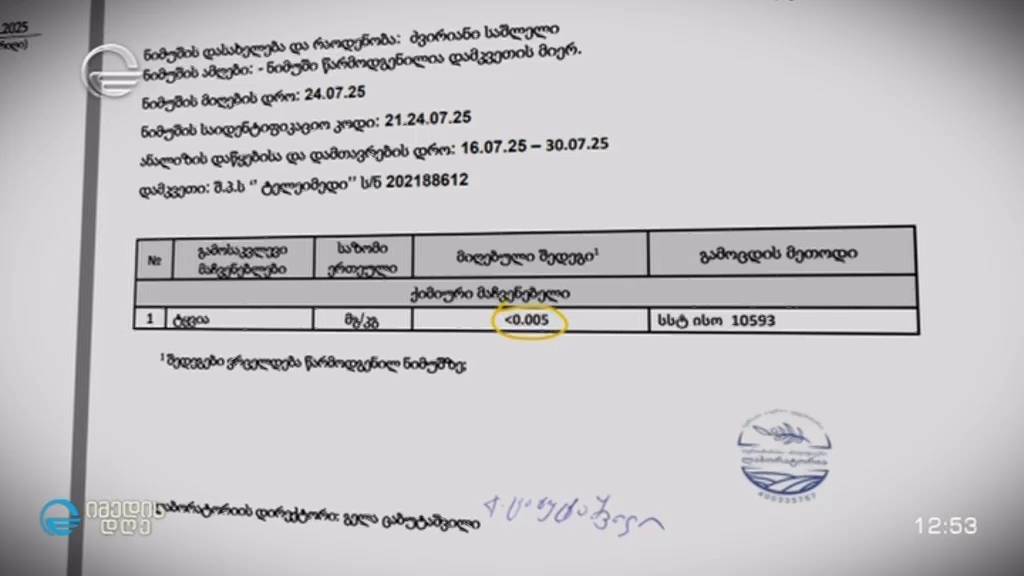 .2025
ნიმუშის დასახელება და რაოდენობა: ძვირიანი საშლელი
ნიმუშის აღები: - ნიმუში წარმოდგენილია დამკვეთის მიერ.
ნიმუშის მიღების დრო: 24.07.25
ნიმუშის საიდენტიფიკაციო კოდი: 21.24.07.25
ანალიზის დაწყებისა და დამთავრების დრო: 16.07.25 – 30.07.25
დამკვეთი: შ.პ.ს " ტელეიმედი" ს/ნ 202188612
№ გამოსაკვლევი მაჩვენებლები საზომი ერთეული მიღებული შედეგი¹ გამოცდის მეთოდი
ქიმიური მაჩვენებელი
1 ტყვია მგ/კგ <0.005 სსტ ისო 10593
¹ შედეგები ვრცელდება წარმოდგენილ ნიმუშზე;
ლაბორატორია
ლაბორატორიის დირექტორი: გელა ცაბუტაშვილი
იმედის
დღე
12:53